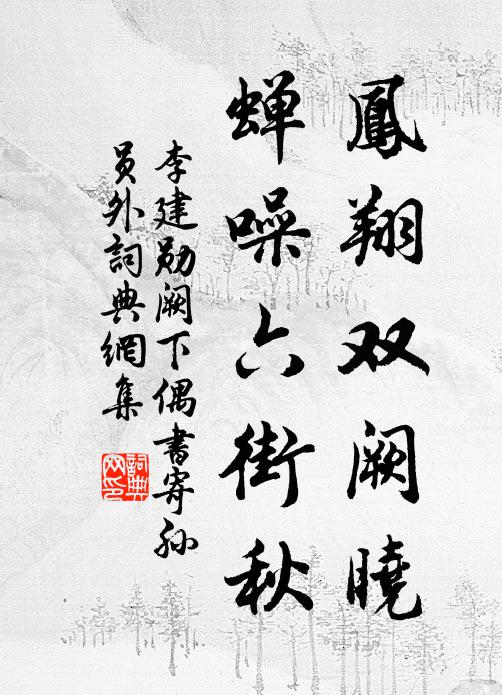 鳳翔双阙曉
蝉噪六街秋
李建勛阙下偶書寄孙
员外詞典網集
詞典
网印